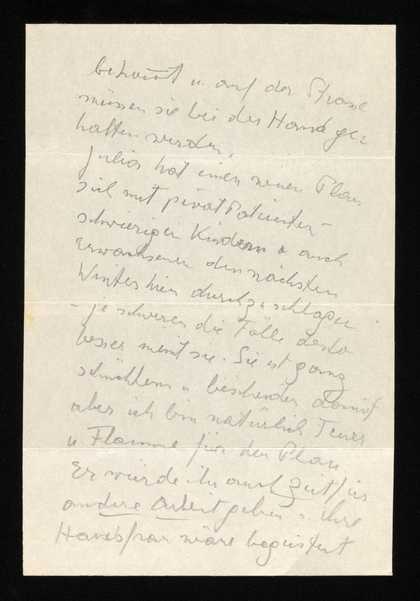 u. auf der Strasse
müssen sie bei der Hand ge-
halten werden.
Julia hat einen neuen Plan
sich mit privat Patienten -
schwierigen Kindern & auch
Erwachsenen den nächsten
Winter hier durchzuschlagen
- je schwerer die Fälle desto
besser meint sie. Sie ist ganz
schüchtern u. bescheiden damit
aber ich bin natürlich Feuer
u Flamme für den Plan
Er würde ihr auch Zeit für
andere Arbeit geben u. ihre
Hausfrau wäre begeistert